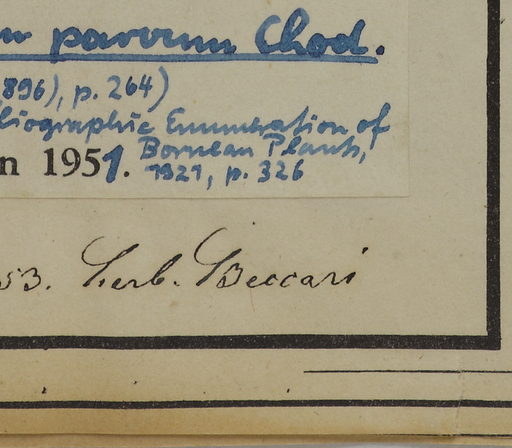 parvum Chod.
896), p. 264)
liographic Enumeration of
Bornean Plants,
n 1951.
1921, p. 326
53. Herb. Beccari